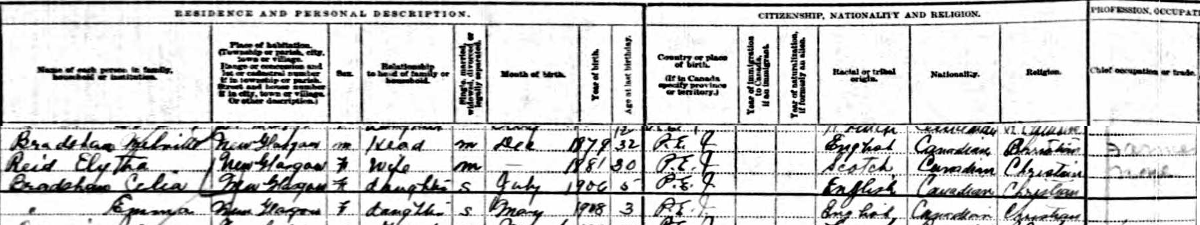 RESIDENCE AND PERSONAL DESCRIPTION. CITIZENSHIP, NATIONALITY AND RELIGION. PROFESSION, OCCUPAT
Name of each person in family, household or institution.
Place of habitation. (Township or parish, city, town or village. Range or concession and lot or cadastral number if in township or parish. Street and house number if in city, town or village. Or other description.)
Sex.
Relationship to head of family or household.
Single, married, widowed, divorced or legally separated.
Month of birth.
Year of birth.
Age at last birthday.
Country or place of birth. (If in Canada specify province or territory.)
Year of immigration to Canada, if an immigrant.
Year of naturalization, if formerly an alien.
Racial or tribal origin.
Nationality.
Religion.
Chief occupation or trade.
Bradshaw Melville New Glasgow m Head m Dec 1878 32 P.E.I English Canadian Christian Farmer
Reid Elytha New Glasgow F Wife m — 1881 30 P.E.I Scotch Canadian Christian none
Bradshaw Celia New Glasgow F daughter s July 1906 5 P.E.I English Canadian Christian
" Emma New Glasgow F daughter s May 1908 3 P.E.I English Canadian Christian